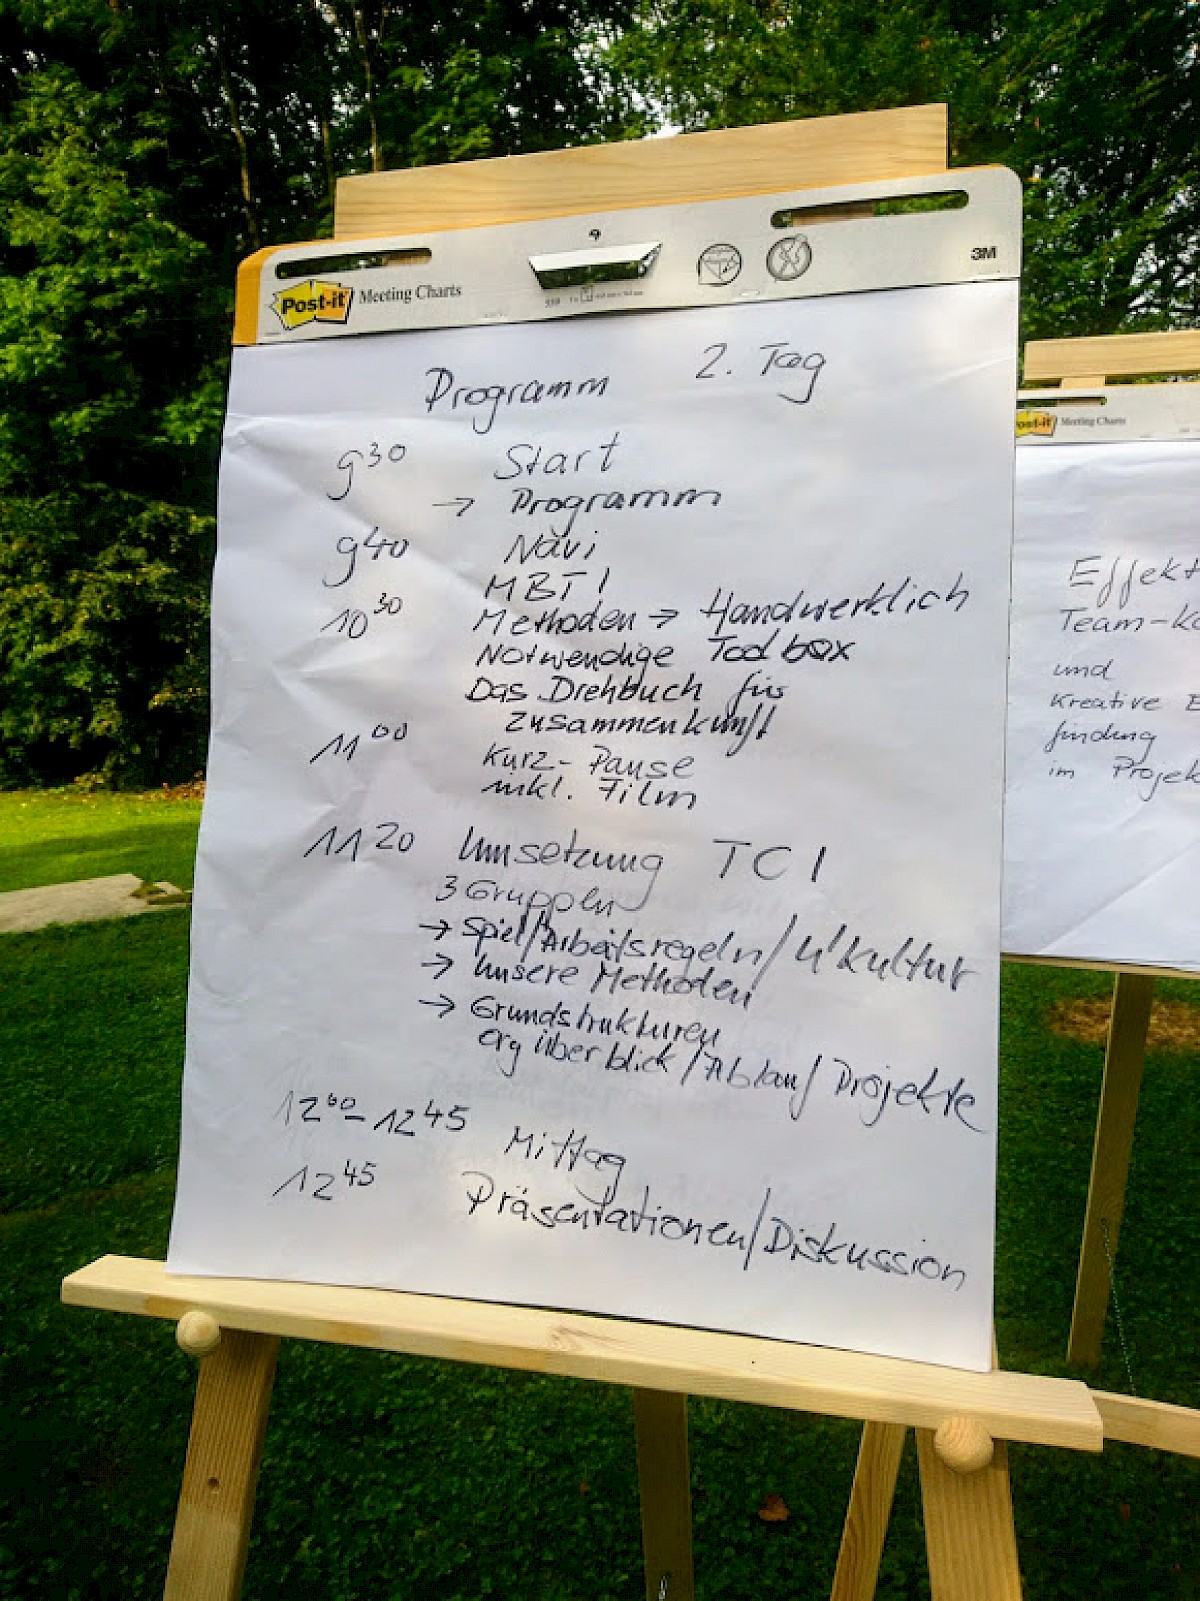 9
Post-it Meeting Charts
3M
559
Programm 2. Tag
9³⁰ Start
→ Programm
9⁴⁰ Navi
MBTI
10³⁰ Methoden → Handwerklich
Notwendige Toolbox
Das Drehbuch für
Zusammenkunft
11⁰⁰ Kurz-Pause
inkl. Film
11²⁰ Umsetzung TCI
3 Gruppen
→ Spiel/Arbeitsregeln/U'Kultur
→ Unsere Methoden
→ Grundstrukturen
org überblick/Ablauf Projekte
12⁰⁰-12⁴⁵ Mittag
12⁴⁵ Präsentationen/Diskussion
Post-it Meeting Charts
Effekt
Team-Ko
und
Kreative E
findung
im Projek